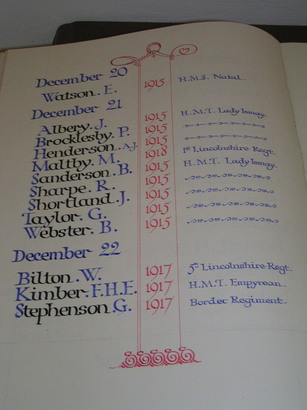 December 20
Watson. E. 1915 H.M.S. Natal.
December 21
Albery. J. 1915 H.M.T. Lady Ismay.
Brocklesby. P. 1915
Henderson. A.J. 1918 1st Lincolnshire Regt.
Maltby. M. 1915 H.M.T. Lady Ismay.
Sanderson. B. 1915
Sharpe. R. 1915
Shortland. J. 1915
Taylor. G. 1915
Webster. B. 1915
December 22
Bilton. W. 1917 5th Lincolnshire Regt.
Kimber. F.H.E. 1917 H.M.T. Empyrean.
Stephenson. G. 1917 Border Regiment.